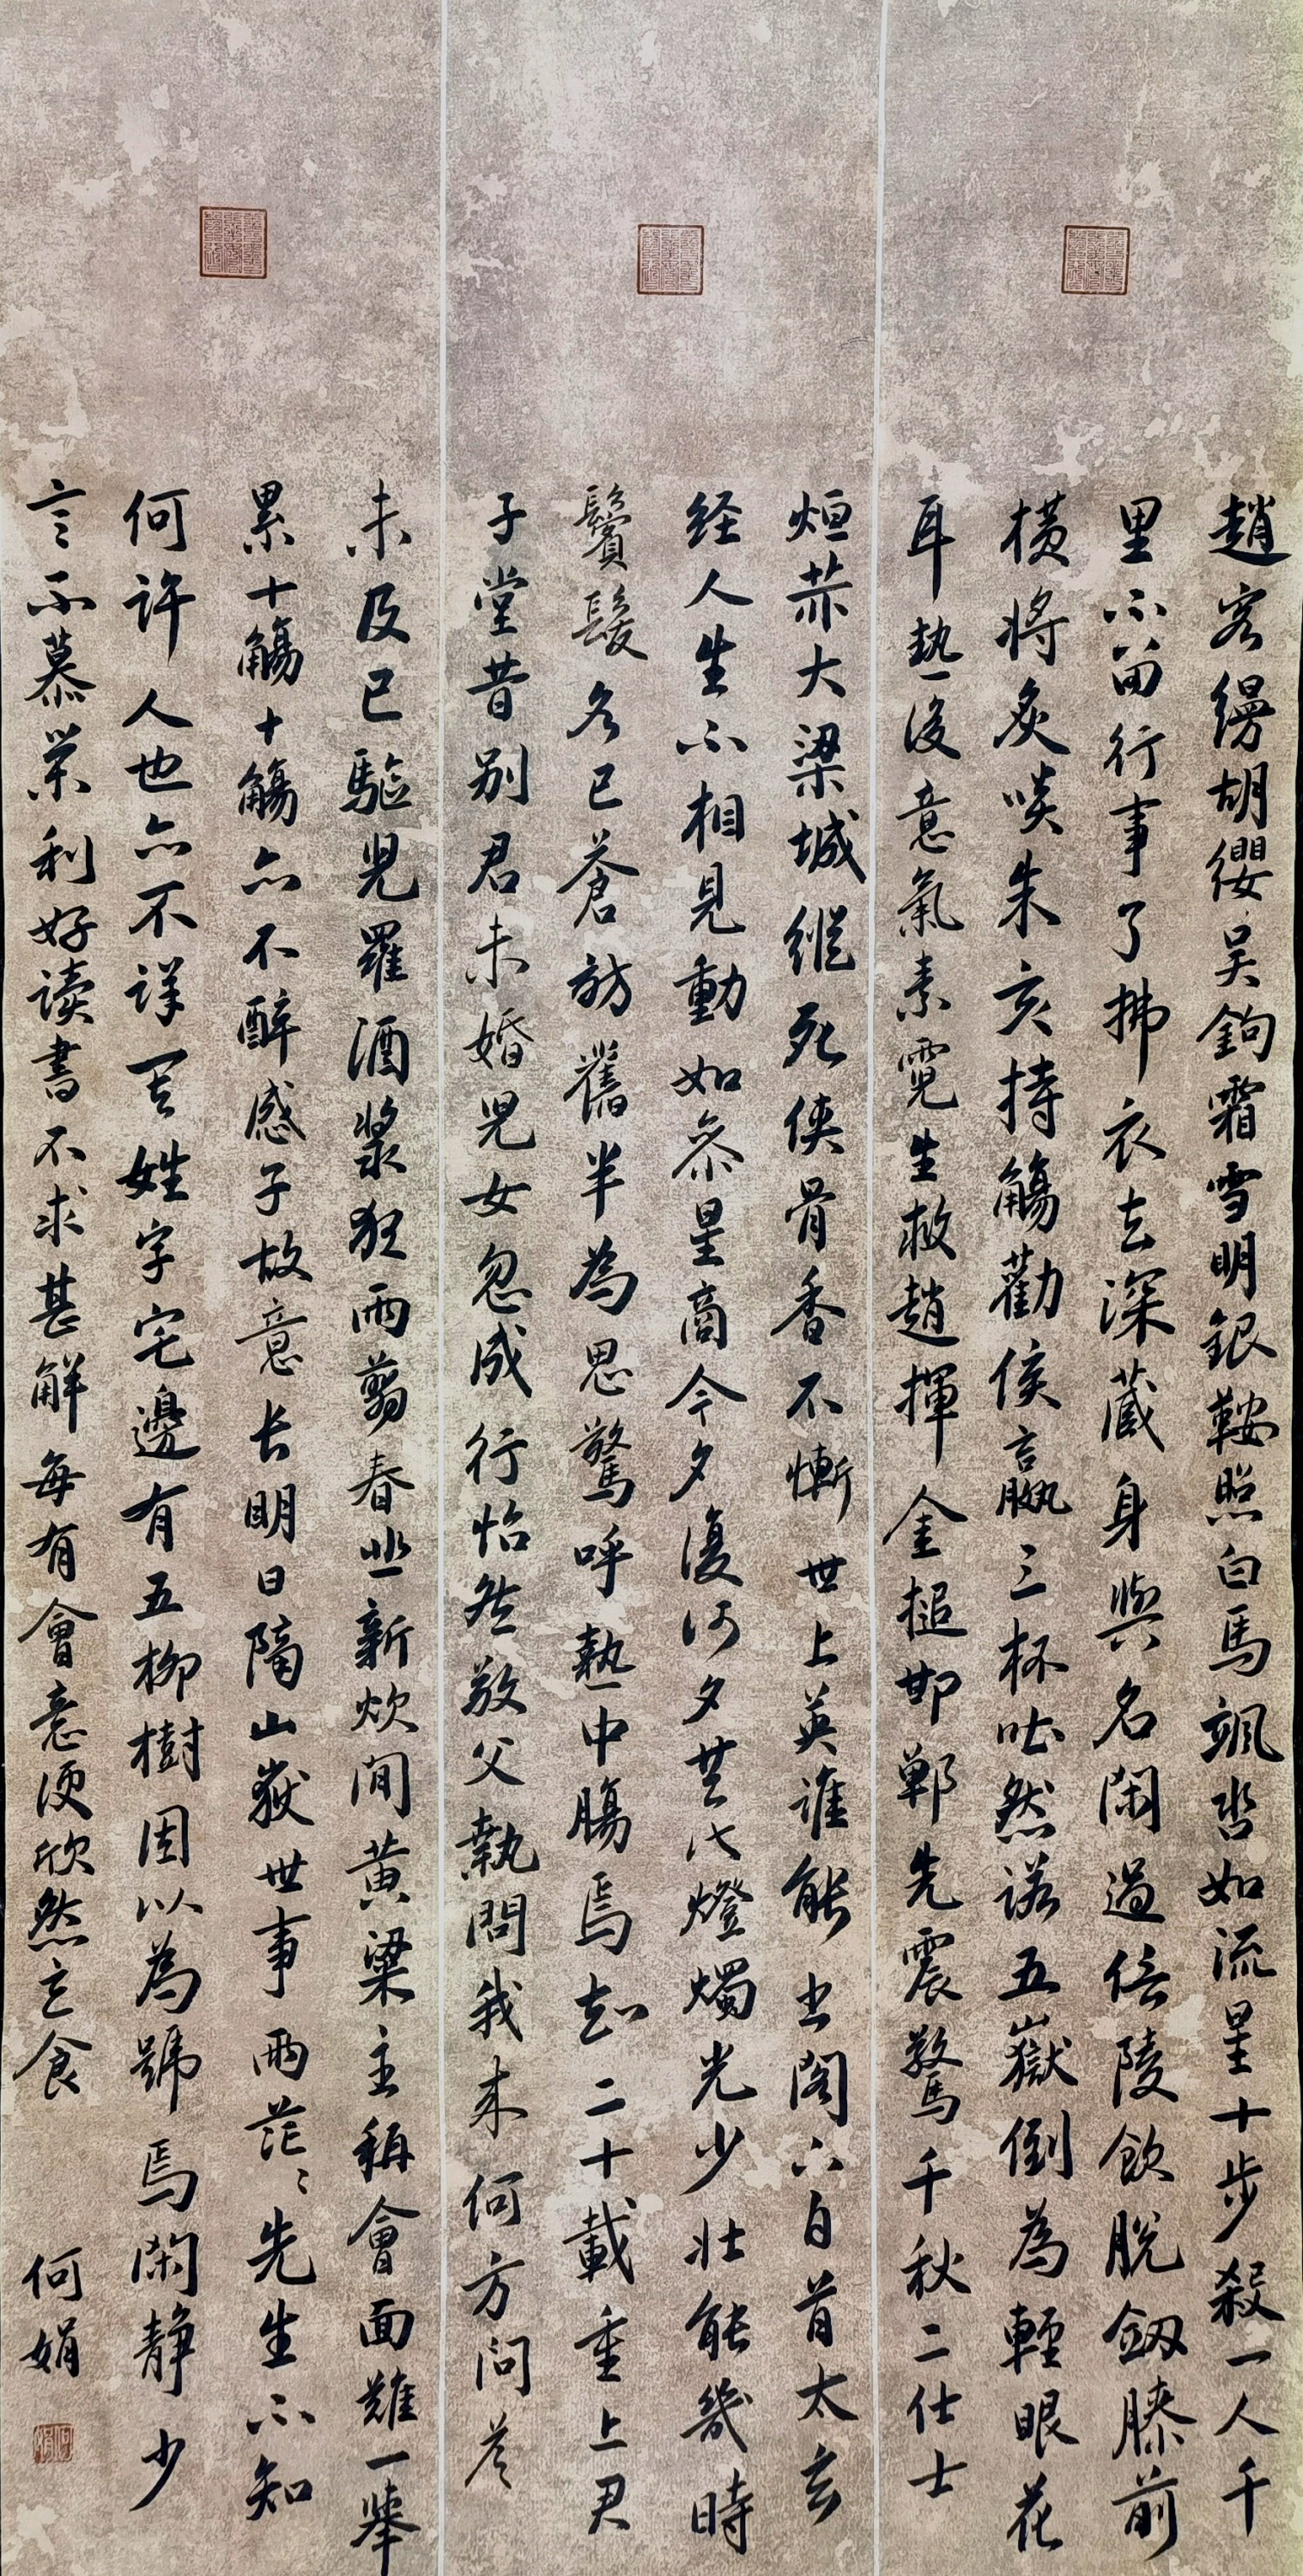 趙客縵胡纓吳鉤霜雪明銀鞍照白馬颯沓如流星十步殺一人千
里不留行事了拂衣去深藏身與名閑過信陵飲脫劔膝前
橫將炙啖朱亥持觴勸侯嬴三杯吐然諾五嶽倒為輕眼花
耳熱後意氣素霓生救趙揮金槌邯鄲先震驚千秋二仕士
烜赫大梁城縱死俠骨香不慚世上英誰能書閣下白首太玄
经人生不相見動如參星商今夕復何夕共此燈燭光少壯能幾時
鬢髮各已蒼訪舊半為思驚呼熱中腸焉知二十載重上君
子堂昔別君未婚兒女忽成行怡然敬父執問我来何方问答
未及已驅兒羅酒漿狂雨翦春韭新炊间黄粱主稱會面難一舉
累十觴十觴亦不醉感子故意长明日隔山嶽世事兩茫〻先生不知
何许人也亦不详其姓字宅邊有五柳樹因以為號焉閑静少
言不慕榮利好读書不求甚解每有會意便欣然忘食
何娟
何娟